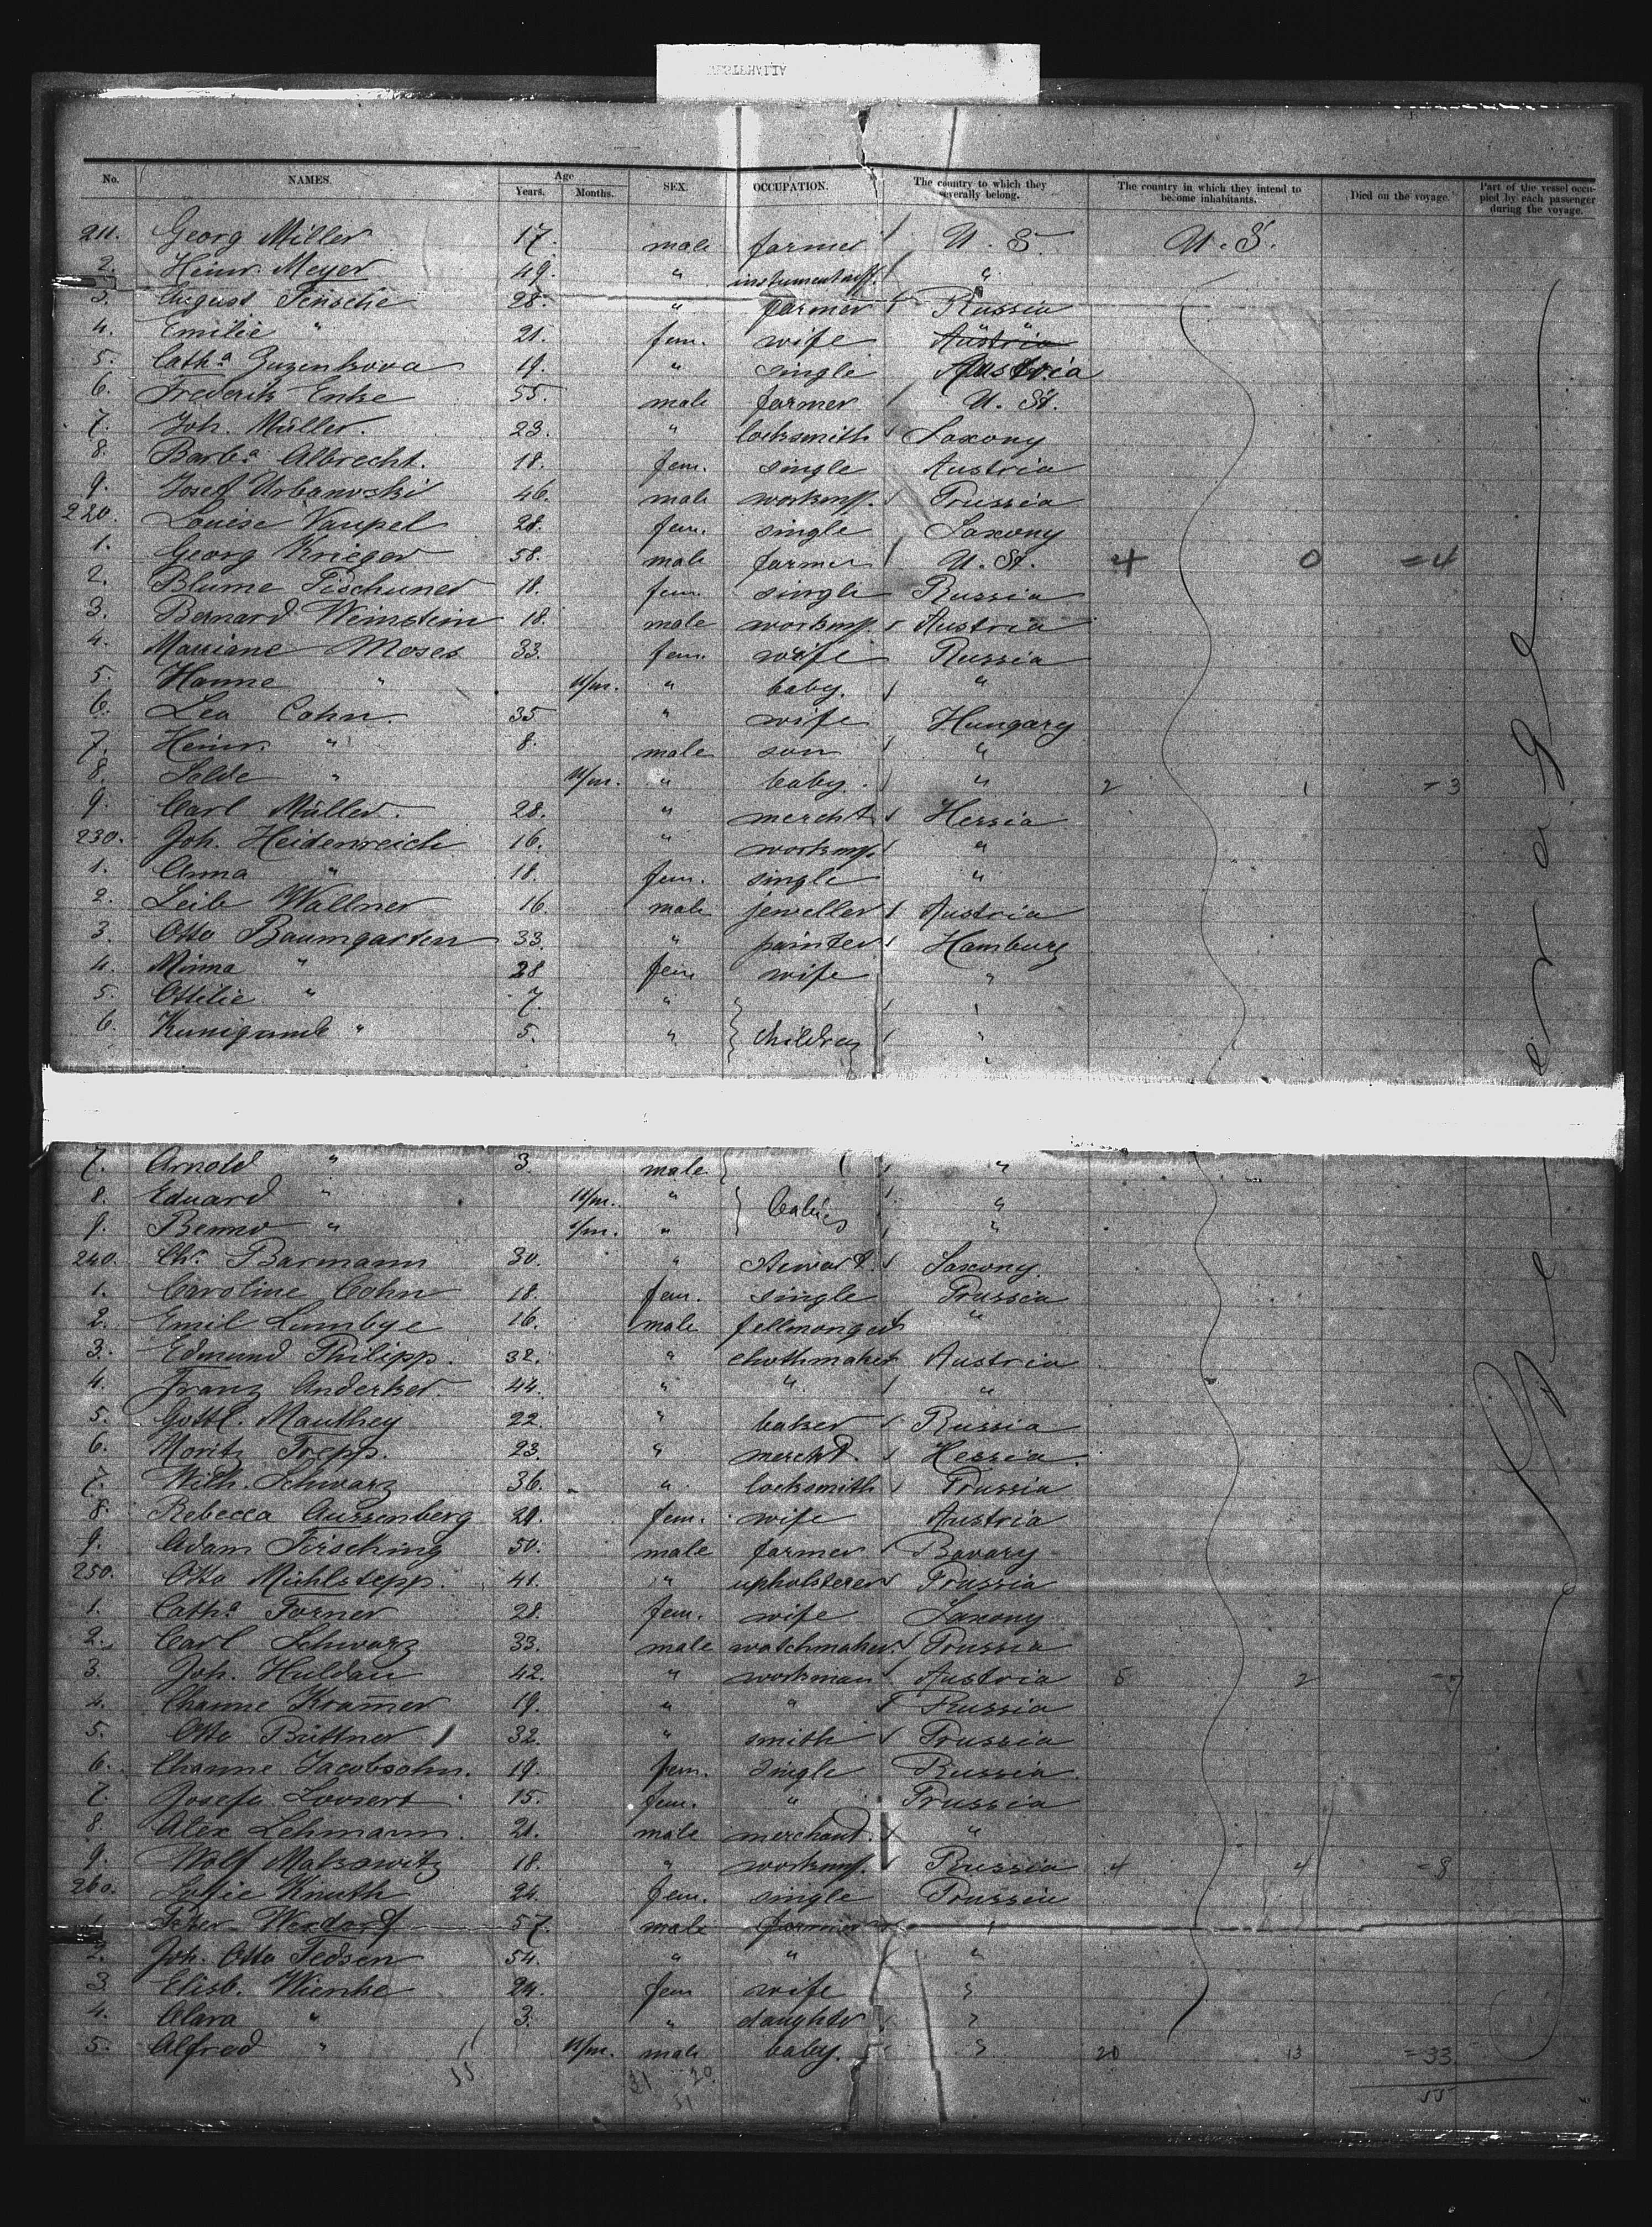 No. NAMES. Age Years. Months. SEX. OCCUPATION. The country to which they severally belong. The country in which they intend to become inhabitants. Died on the voyage. Part of the vessel occupied by each passenger during the voyage.
211. Georg Miller 17. male farmer U. S. U. S.
2. Heinr. Meyer 49. " "
3. August 28. " farmer Russia
4. Emilie " 21. fem. wife "
5. Cath.a 19. " single Austria
6. Frederik Enke 55. male farmer U. St.
7. Joh. Müller. 23. " locksmith Saxony
8. Barb.a Albrecht. 18. fem. single Austria
9. Josef Urbanoski 46. male workm. Prussia
220. Louise Vaupel 28. fem. single Saxony
1. Georg Krieger 58. male farmer U. St. 4 0 =4
2. Blume Pischuner 18. fem. single Russia
3. Bernard Weinstein 18. male workm. Austria
4. Marriane Moses 33. fem. wife Russia
5. Hanne " 11/m. " baby. "
6. Lea Cohn. 35 " wife Hungary
7. Heinr. " 8. male son "
8. Salde " 11/m. " baby. " 2 1 =3
9. Carl Müller. 28. " mercht. Hessia
230. Joh. Heidenreich 16. " workm. "
1. Anna " 18. fem. single "
2. Leib Wallner 16. male jeweller Austria
3. Otto Baumgarten 33. " painter Hamburg
4. Minna " 28 fem wife "
5. Ottilie " 7. " "
6. " 5. " children "
7. Arnold " 3. male "
8. Eduard " 11/m. " babies "
9. Benno " " "
240. Ch. Barmann 30. " stewart. Saxony.
1. Caroline Cohn 18. fem. single Prussia
2. Emil Lumbye 16. male fellmonger "
3. Edmund Philipp. 32. " clothmaker Austria
4. Franz Anderker. 44. " " "
5. Gottl. Manthey 22 " baker Russia
6. Moritz Trepp. 23. " mercht. Hessia.
7. Wilh. Schwarz 36. " locksmith Prussia
8. Rebecca Aussenberg 21. fem. wife Austria
9. Adam Firsching 50. male farmer Bavary
250. Otto Mühlstepp. 41. " upholsterer Prussia
1. Cath.a Forner 28. fem. wife Saxony
2. Carl Schwarz 33. male watchmaker. Prussia
3. Joh. Huldau 42. " workman Austria 5 2 =7
4. Channe Kramer 19. " " Russia
5. Otto Büttner 32. " smith Prussia
6. Channe Jacobsohn. 19. fem. single Russia
7. Josefa 15. fem. " Prussia
8. Alex Lehmann. 21. male merchand. "
9. Wolf Matsowitz 18. " workm. Russia 4 4 =8
260. Sofie Knuth 24. fem. single Prussia
1. Peter Wendorf 57. male farmer "
2. Joh. Otto Tedsen 54. " " "
3. Elisb. Wienke 24. fem wife "
4. Clara " 3. " daughter "
5. Alfred " 11/m. male baby. " 20 13 =33
55 31 20 55
51